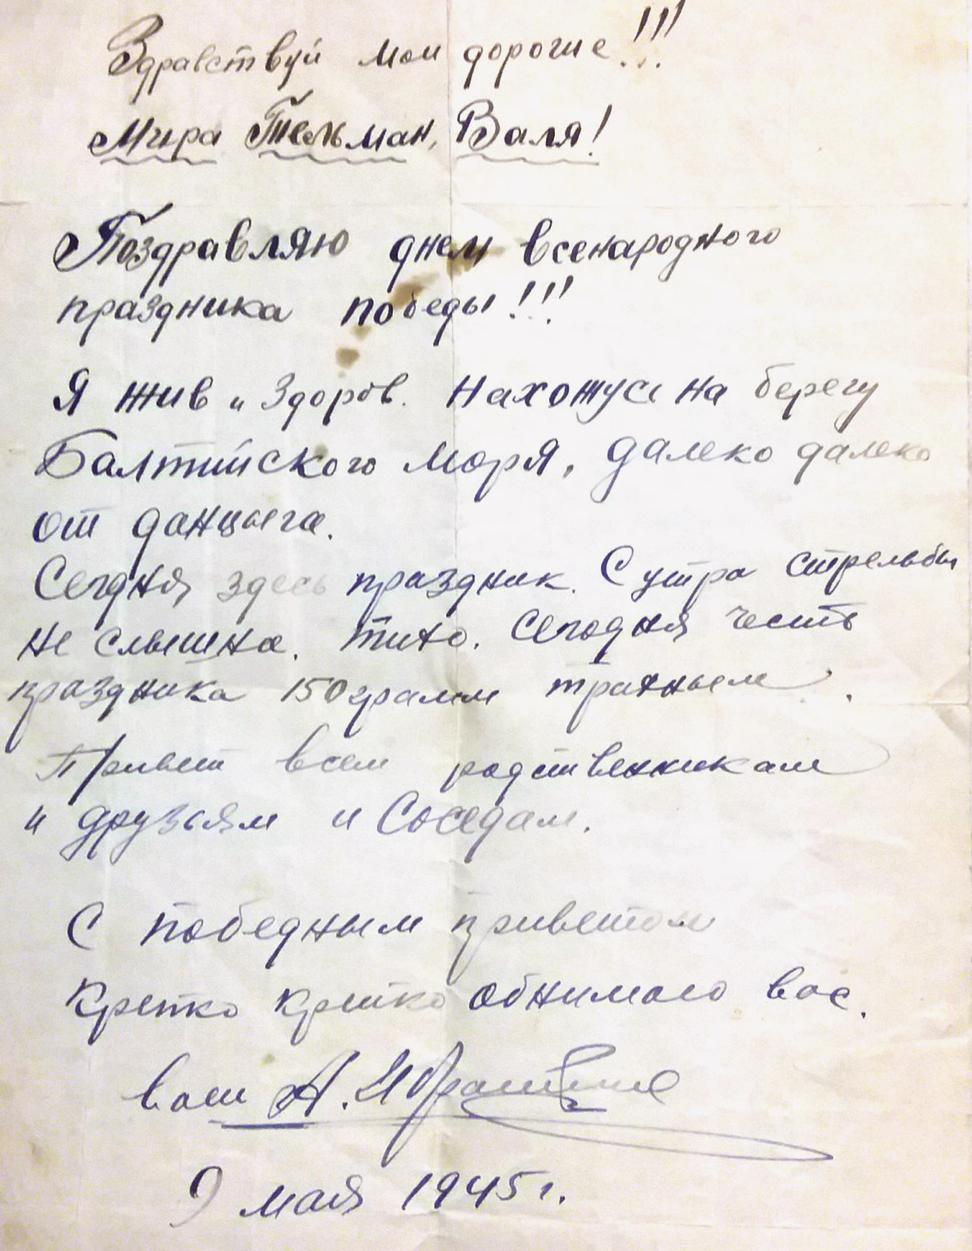 Здравствуй мои дорогие!!!
Мира Тельман, Валя!
Поздравляю днем всенародного
праздника победы!!!
Я жив и здоров. Нахожусь на берегу
Балтийского моря, далеко далеко
от данцыга.
Сегодня здесь праздник. С утра стрельбы
не слышна. Тихо. Сегодня честь
праздника 150 грамм
Привет всем родственникам
и друзьям и Соседам.
С победным приветом
Крепко крепко обнимаю вас.
ваш А.
9 мая 1945 г.